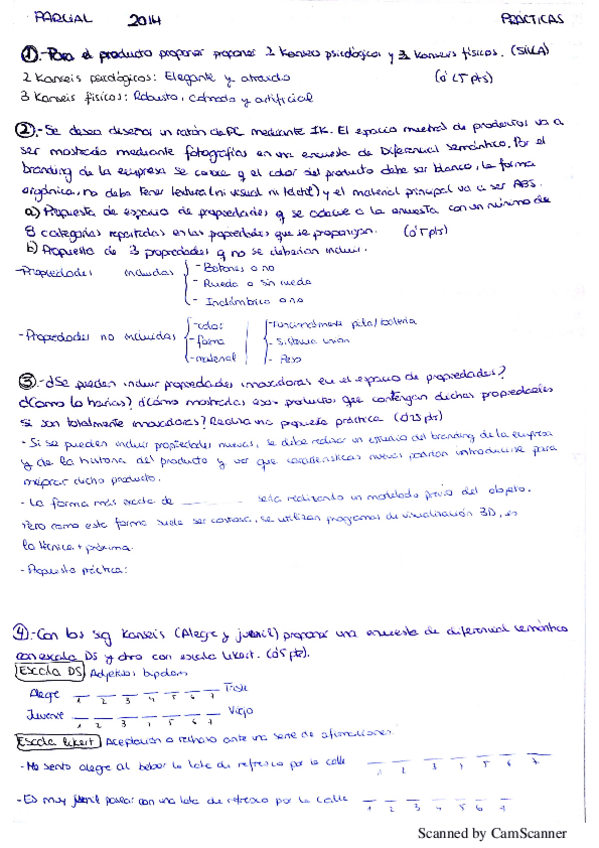 PARCIAL 2014 PRÁCTICAS
①.- Para el producto proponer proponer 2 Kanseis psicológicos y 3 Kanseis físicos. (SILLA)
2 Kanseis psicológicos: Elegante y atrevido (0'25 pts)
3 Kanseis físicos: Robusto, cómodo y artificial
②.- Se desea diseñar un ratón de PC mediante IK. El espacio muestral de productos va a
ser mostrado mediante fotografías en una encuesta de Diferencial semántico. Por el
branding de la empresa se q el color del producto debe ser blanco, la forma
orgánica, no debe tener textura (ni visual ni táctil) y el material principal va a ser ABS.
a) Propuesta de espacio de propiedades q se adecue a la encuesta con un mínimo de
8 categorías repartidas en las propiedades que se propongan. (0'5 pts)
b) Propuesta de 3 propiedades q no se deberían incluir.
- Propiedades incluidas
- Botones o no
- Rueda o sin rueda
- Inalámbrico o no
- Propiedades no incluidas
- color
- forma
- material
- Funcionamiento pila/batería
- Sistema unión
- Peso
③.- ¿Se pueden incluir propiedades innovadoras en el espacio de propiedades?
¿Cómo lo harías? ¿Cómo mostrarías esos productos que contengan dichas propiedades
si son totalmente innovadoras? Realiza una propuesta práctica (0'25 pts)
- Si se pueden incluir propiedades nuevas, se debe realizar un estudio del branding de la empresa
y de la historia del producto y ver que características nuevas podrían introducirse para
mejorar dicho producto.
- La forma más exacta de ________ sería realizando un modelado previo del objeto.
Pero como esta forma suele ser costosa, se utilizan programas de visualización 3D, es
la técnica + próxima.
- Propuesta práctica:
④.- Con los sig Kanseis (Alegre y juvenil) proponer una encuesta de diferencial semántico
con escala DS y otro con escala Likert. (0'5 pts).
Escala DS Adjetivos bipolares
Alegre 1 2 3 4 5 6 7 Triste
Juvenil 1 2 3 4 5 6 7 Viejo
Escala Likert Aceptación o rechazo ante una serie de afirmaciones.
- Me siento alegre al beber la lata de refresco por la calle 1 2 3 4 5 6 7
- Es muy juvenil pasear con una lata de refresco por la calle 1 2 3 4 5 6 7
Scanned by CamScanner